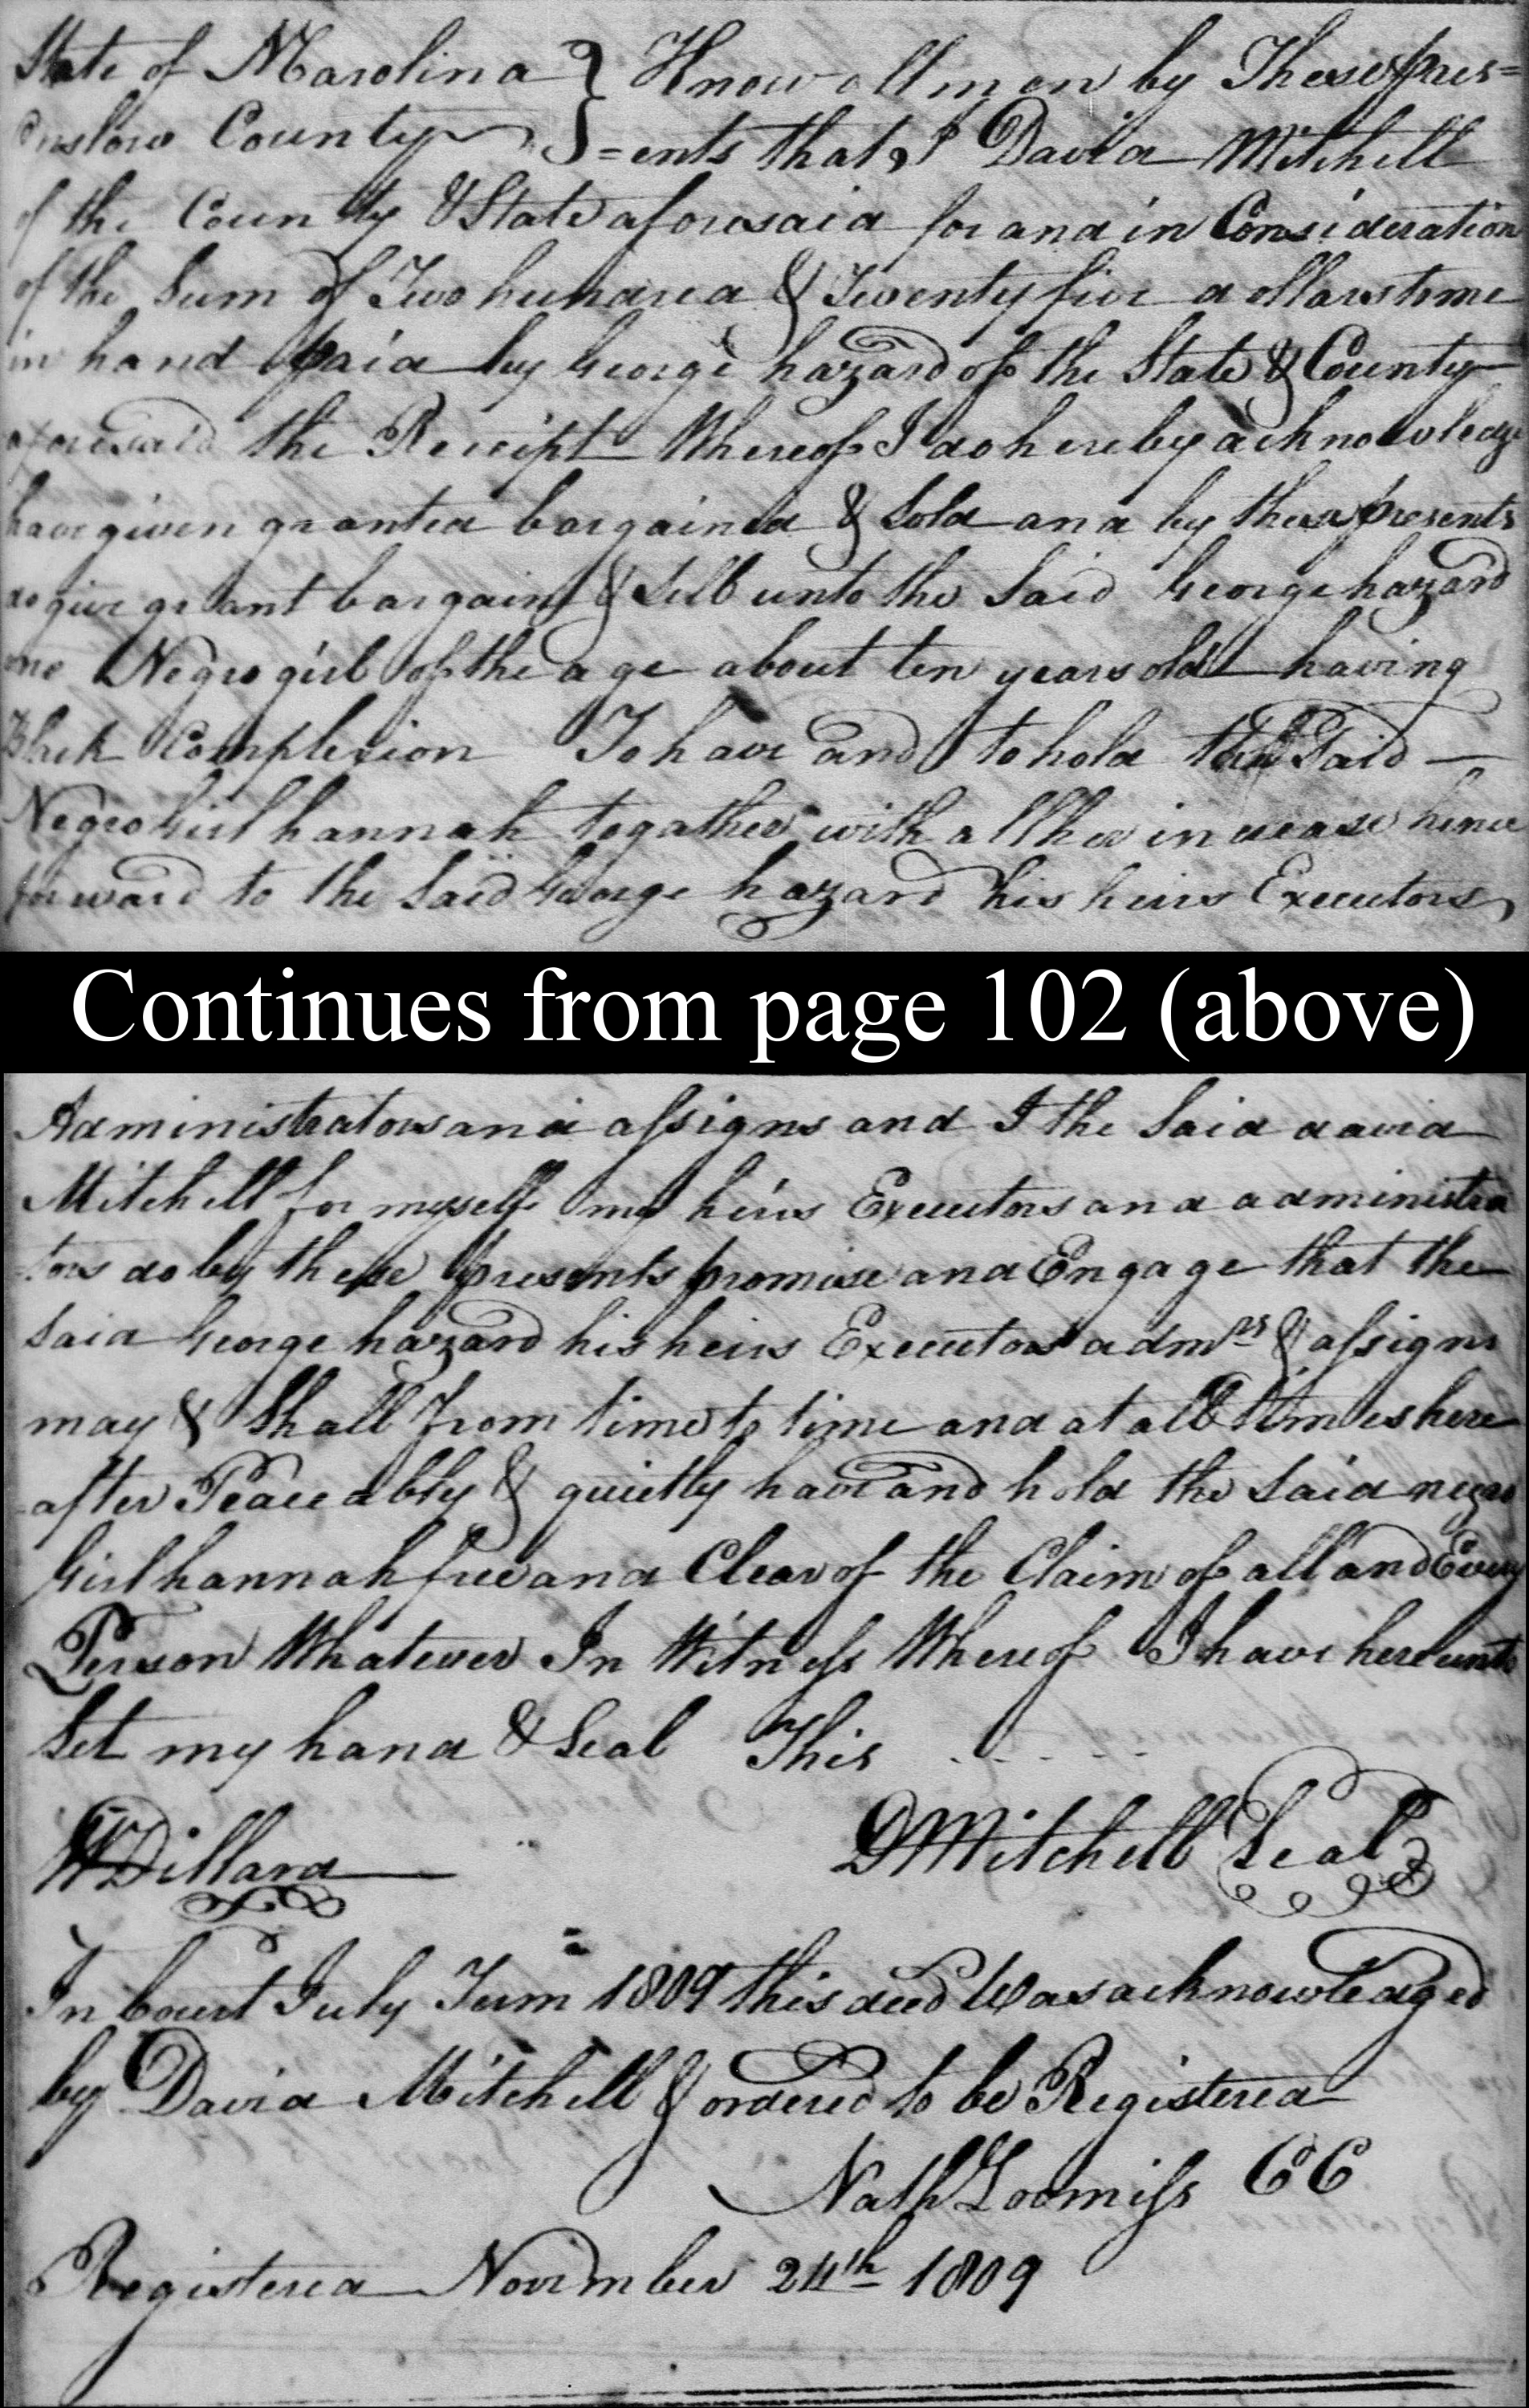 State of N Carolina } Know all men by These pres=
Onslow County } =ents that I David Mitchell
of the County & State aforesaid for and in Consideration
of the Sum of Two hundred & Twenty five dollars to me
in hand paid by George hazard of the State & County
aforesaid the Receipt Whereof I do hereby acknowledge
have given granted bargained & Sold and by these presents
do give grant bargain & Sell unto the Said George hazard
one Negro girl of the age about ten years old having
Black Complexion To have and to hold the Said —
Negro Girl hannah togather with all her increase hence
forward to the Said George hazard his heirs Executors
Continues from page 102 (above)
Administrators and assigns and I the Said david
Mitchell for myself my heirs Executors and administra
tors do by these presents promise and Engage that the
Said George hazard his heirs Executors admrs & assigns
may & Shall From time to time and at all times here
after Peaceably & quietly have and hold the Said negro
Girl hannah free and Clear of the Claim of all and Every
Person Whatever In Witness Whereof I have hereunto
Set my hand & Seal This - - - - -
W Dillard D Mitchell Seal
In Court July Term 1809 this deed Was acknowledged
by David Mitchell & ordered to be Registered
Nath Loomiss CC
Registered November 24th 1809